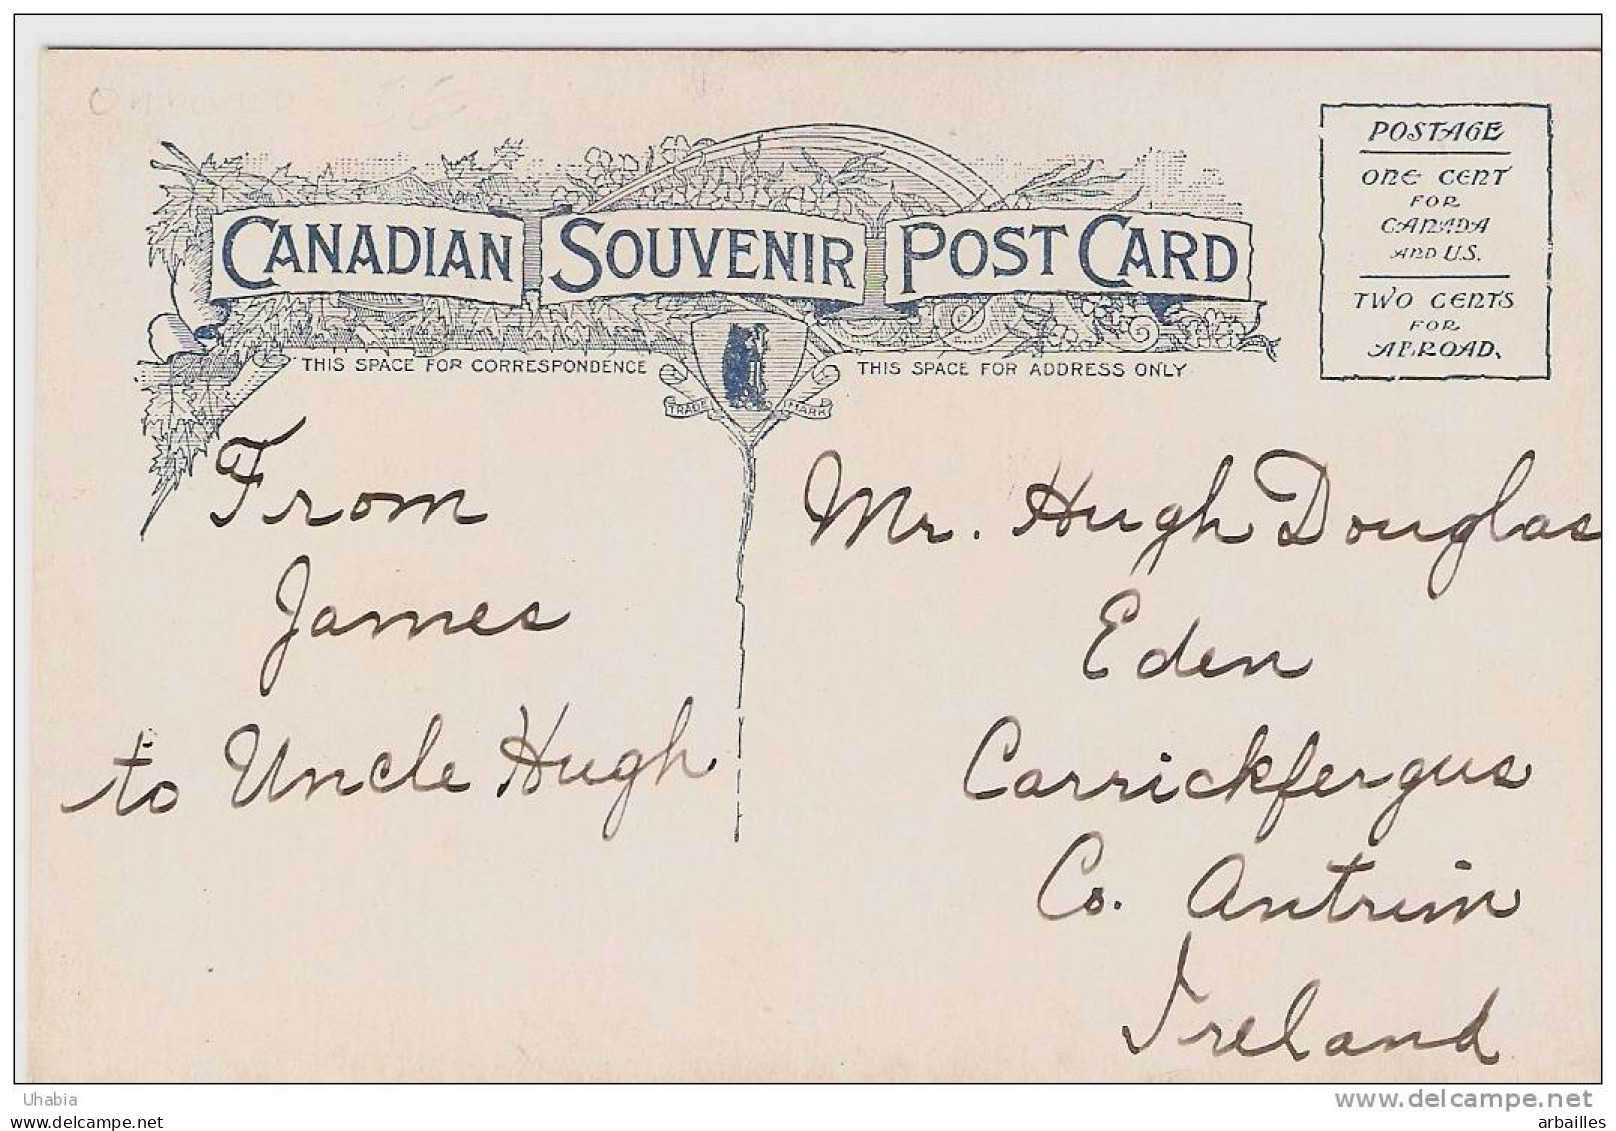 CANADIAN SOUVENIR POST CARD
POSTAGE
ONE CENT
FOR
CANADA
AND U.S.
TWO CENTS
FOR
ABROAD.
THIS SPACE FOR CORRESPONDENCE
THIS SPACE FOR ADDRESS ONLY
TRADE MARK
From
James
to Uncle Hugh
Mr. Hugh Douglas
Eden
Carrickfergus
Co. Antrim
Ireland
Uhabia
www.delcampe.net
arbailles